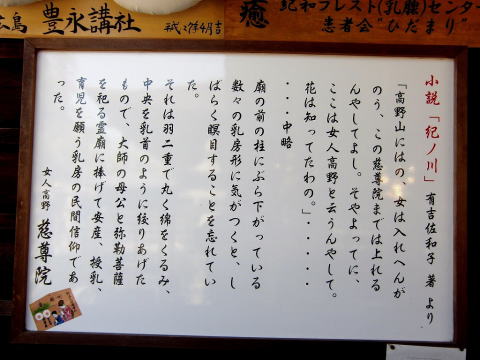 広島 豊永講社 平成二年4月吉
癒 紀和ブレスト(乳腺)センター
患者会"ひだまり"
小説「紀ノ川」 有吉佐和子 著 より
「高野山にはの、女は入れへんが
のう、この慈尊院までは上れる
んやしてよし。そやよってに、
ここは女人高野と云うんやして。
花は知ってたわの。」・・・・・
・・・・中略
廟の前の柱にぶら下がっている
数々の乳房形に気がつくと、し
ばらく瞑目することを忘れてい
た。
それは羽二重で丸く綿をくるみ、
中央を乳首のように絞りあげた
もので、大師の母公と弥勒菩薩
を祀る霊廟に捧げて安産、授乳、
育児を願う乳房の民間信仰であ
った。
女人高野 慈尊院